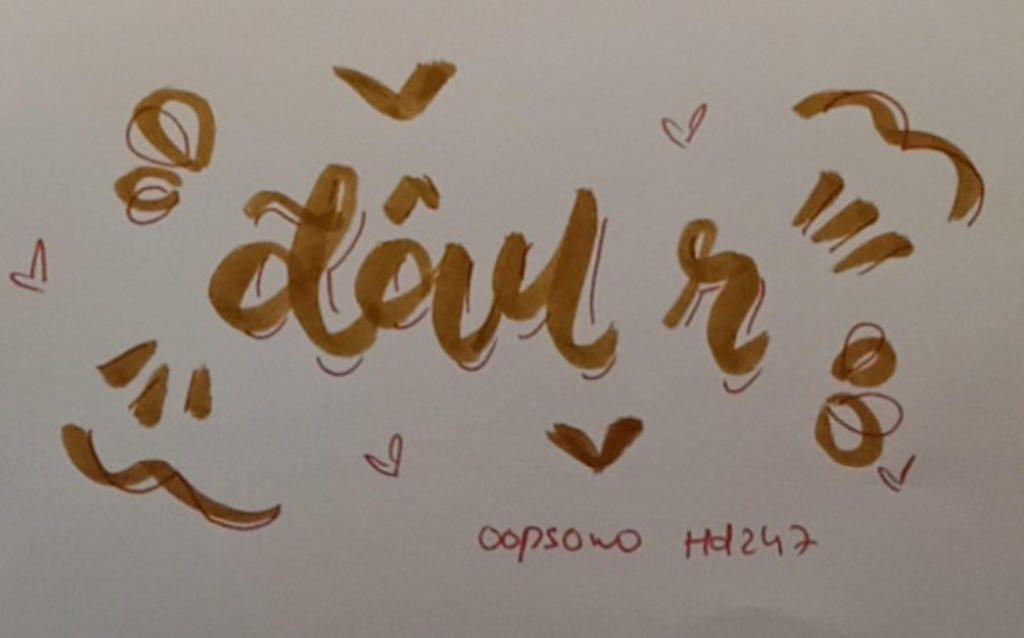 đâu r
oopsowo Hd247